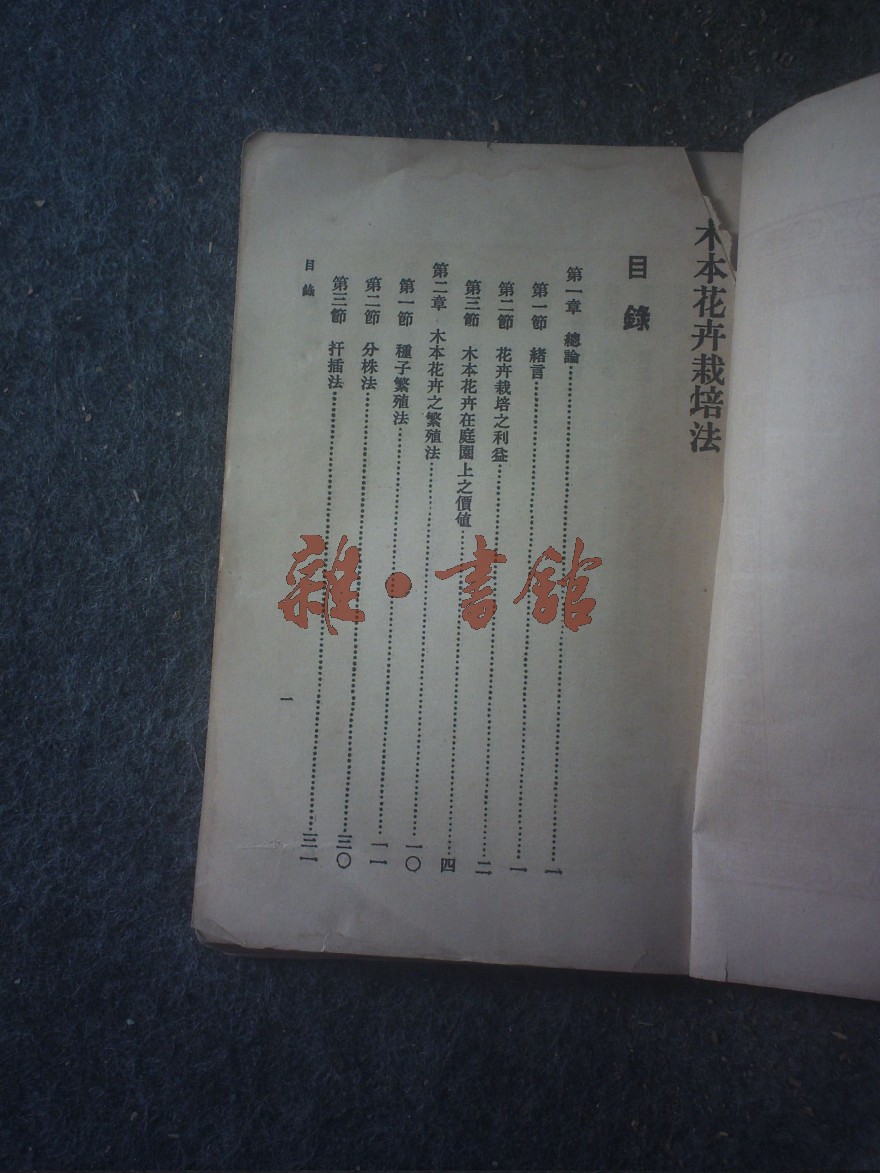 木本花卉栽培法
目錄
第一章 總論………一
第一節 緒言………一
第二節 花卉栽培之利益………二
第三節 木本花卉在庭園上之價值………四
第二章 木本花卉之繁殖法………一〇
第一節 種子繁殖法………一一
第二節 分株法………三〇
第三節 扦插法………三一
目錄
一
雜·書館